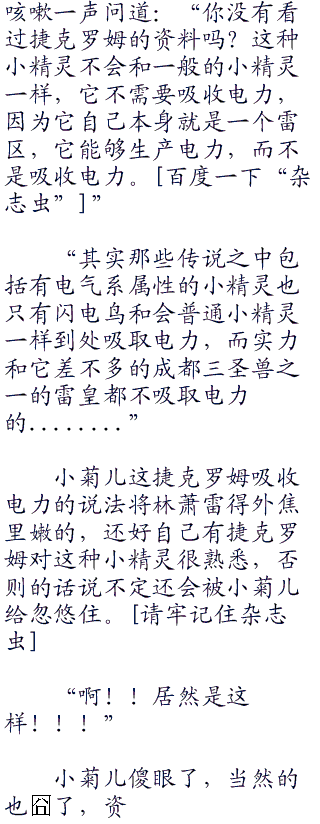 咳嗽一声问道：“你没有看
过捷克罗姆的资料吗？这种
小精灵不会和一般的小精灵
一样，它不需要吸收电力，
因为它自己本身就是一个雷
区，它能够生产电力，而不
是吸收电力。[百度一下“杂
志虫”]”
“其实那些传说之中包
括有电气系属性的小精灵也
只有闪电鸟和会普通小精灵
一样到处吸取电力，而实力
和它差不多的成都三圣兽之
一的雷皇都不吸取电力
的........”
小菊儿这捷克罗姆吸收
电力的说法将林萧雷得外焦
里嫩的，还好自己有捷克罗
姆对这种小精灵很熟悉，否
则的话说不定还会被小菊儿
给忽悠住。[请牢记住杂志
虫]
“啊！！居然是这
样！！！”
小菊儿傻眼了，当然的
也囧了，资